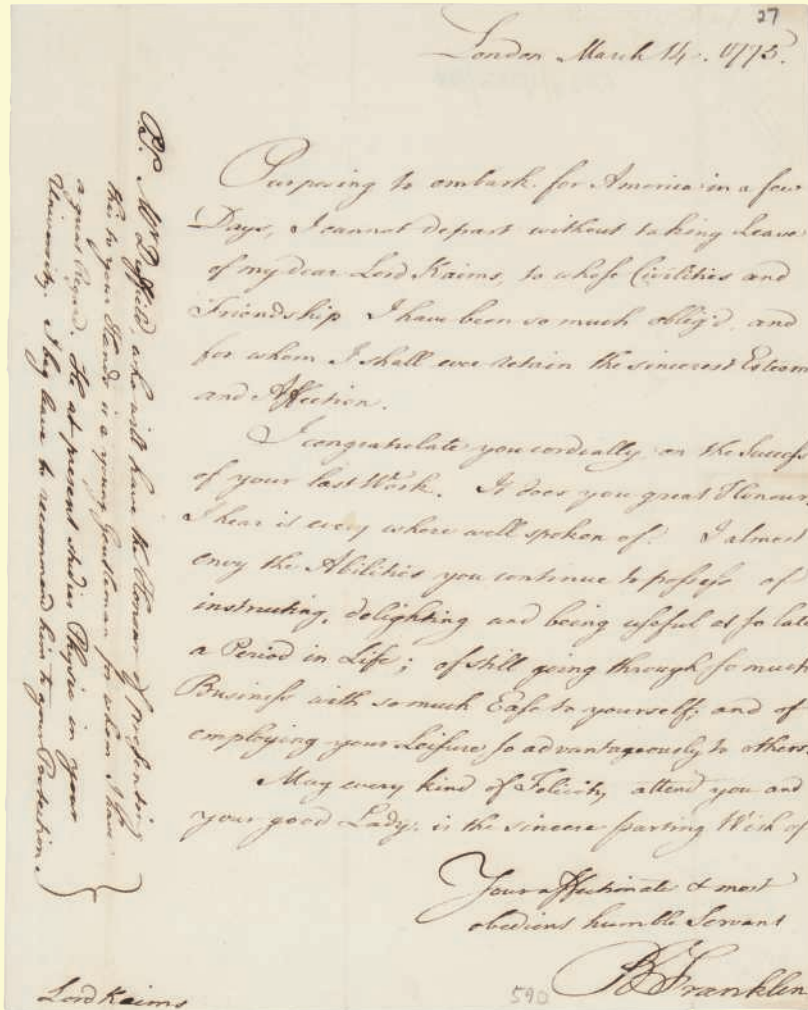 27
London March 14. 1775.
Purposing to embark for America in a few
Days, I cannot depart without taking Leave
of my dear Lord Kaims, to whose Civilities and
Friendship I have been so much oblig'd, and
for whom I shall ever retain the sincerest Esteem
and Affection.
I congratulate you cordially on the Success
of your last Work. It does you great Honour,
I hear is every where well spoken of. I almost
envy the Abilities you continue to possess of
instructing, delighting and being useful at so late
a Period in Life; of still going through so much
Business with so much Ease to yourself; and of
employing your Leisure so advantageously to others.
May every kind of Felicity attend you and
your good Lady, is the sincere parting Wish of
Your affectionate & most
obedient humble Servant
B Franklin
590
Lord Kaims
P.S. Mr Duffield, who will have the Honour of presenting
this to your Hands is a young Gentleman for whom I have
a great Regard. He at present studies Physic in your
University. I beg leave to recommend him to your Protection.